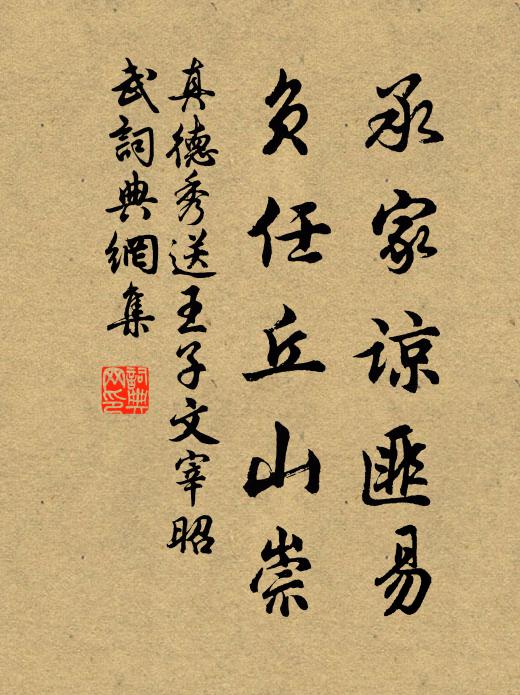 承家谅匪易
负任丘山崇
真德秀送王子文宰昭
武詞典網集
詞典
网印